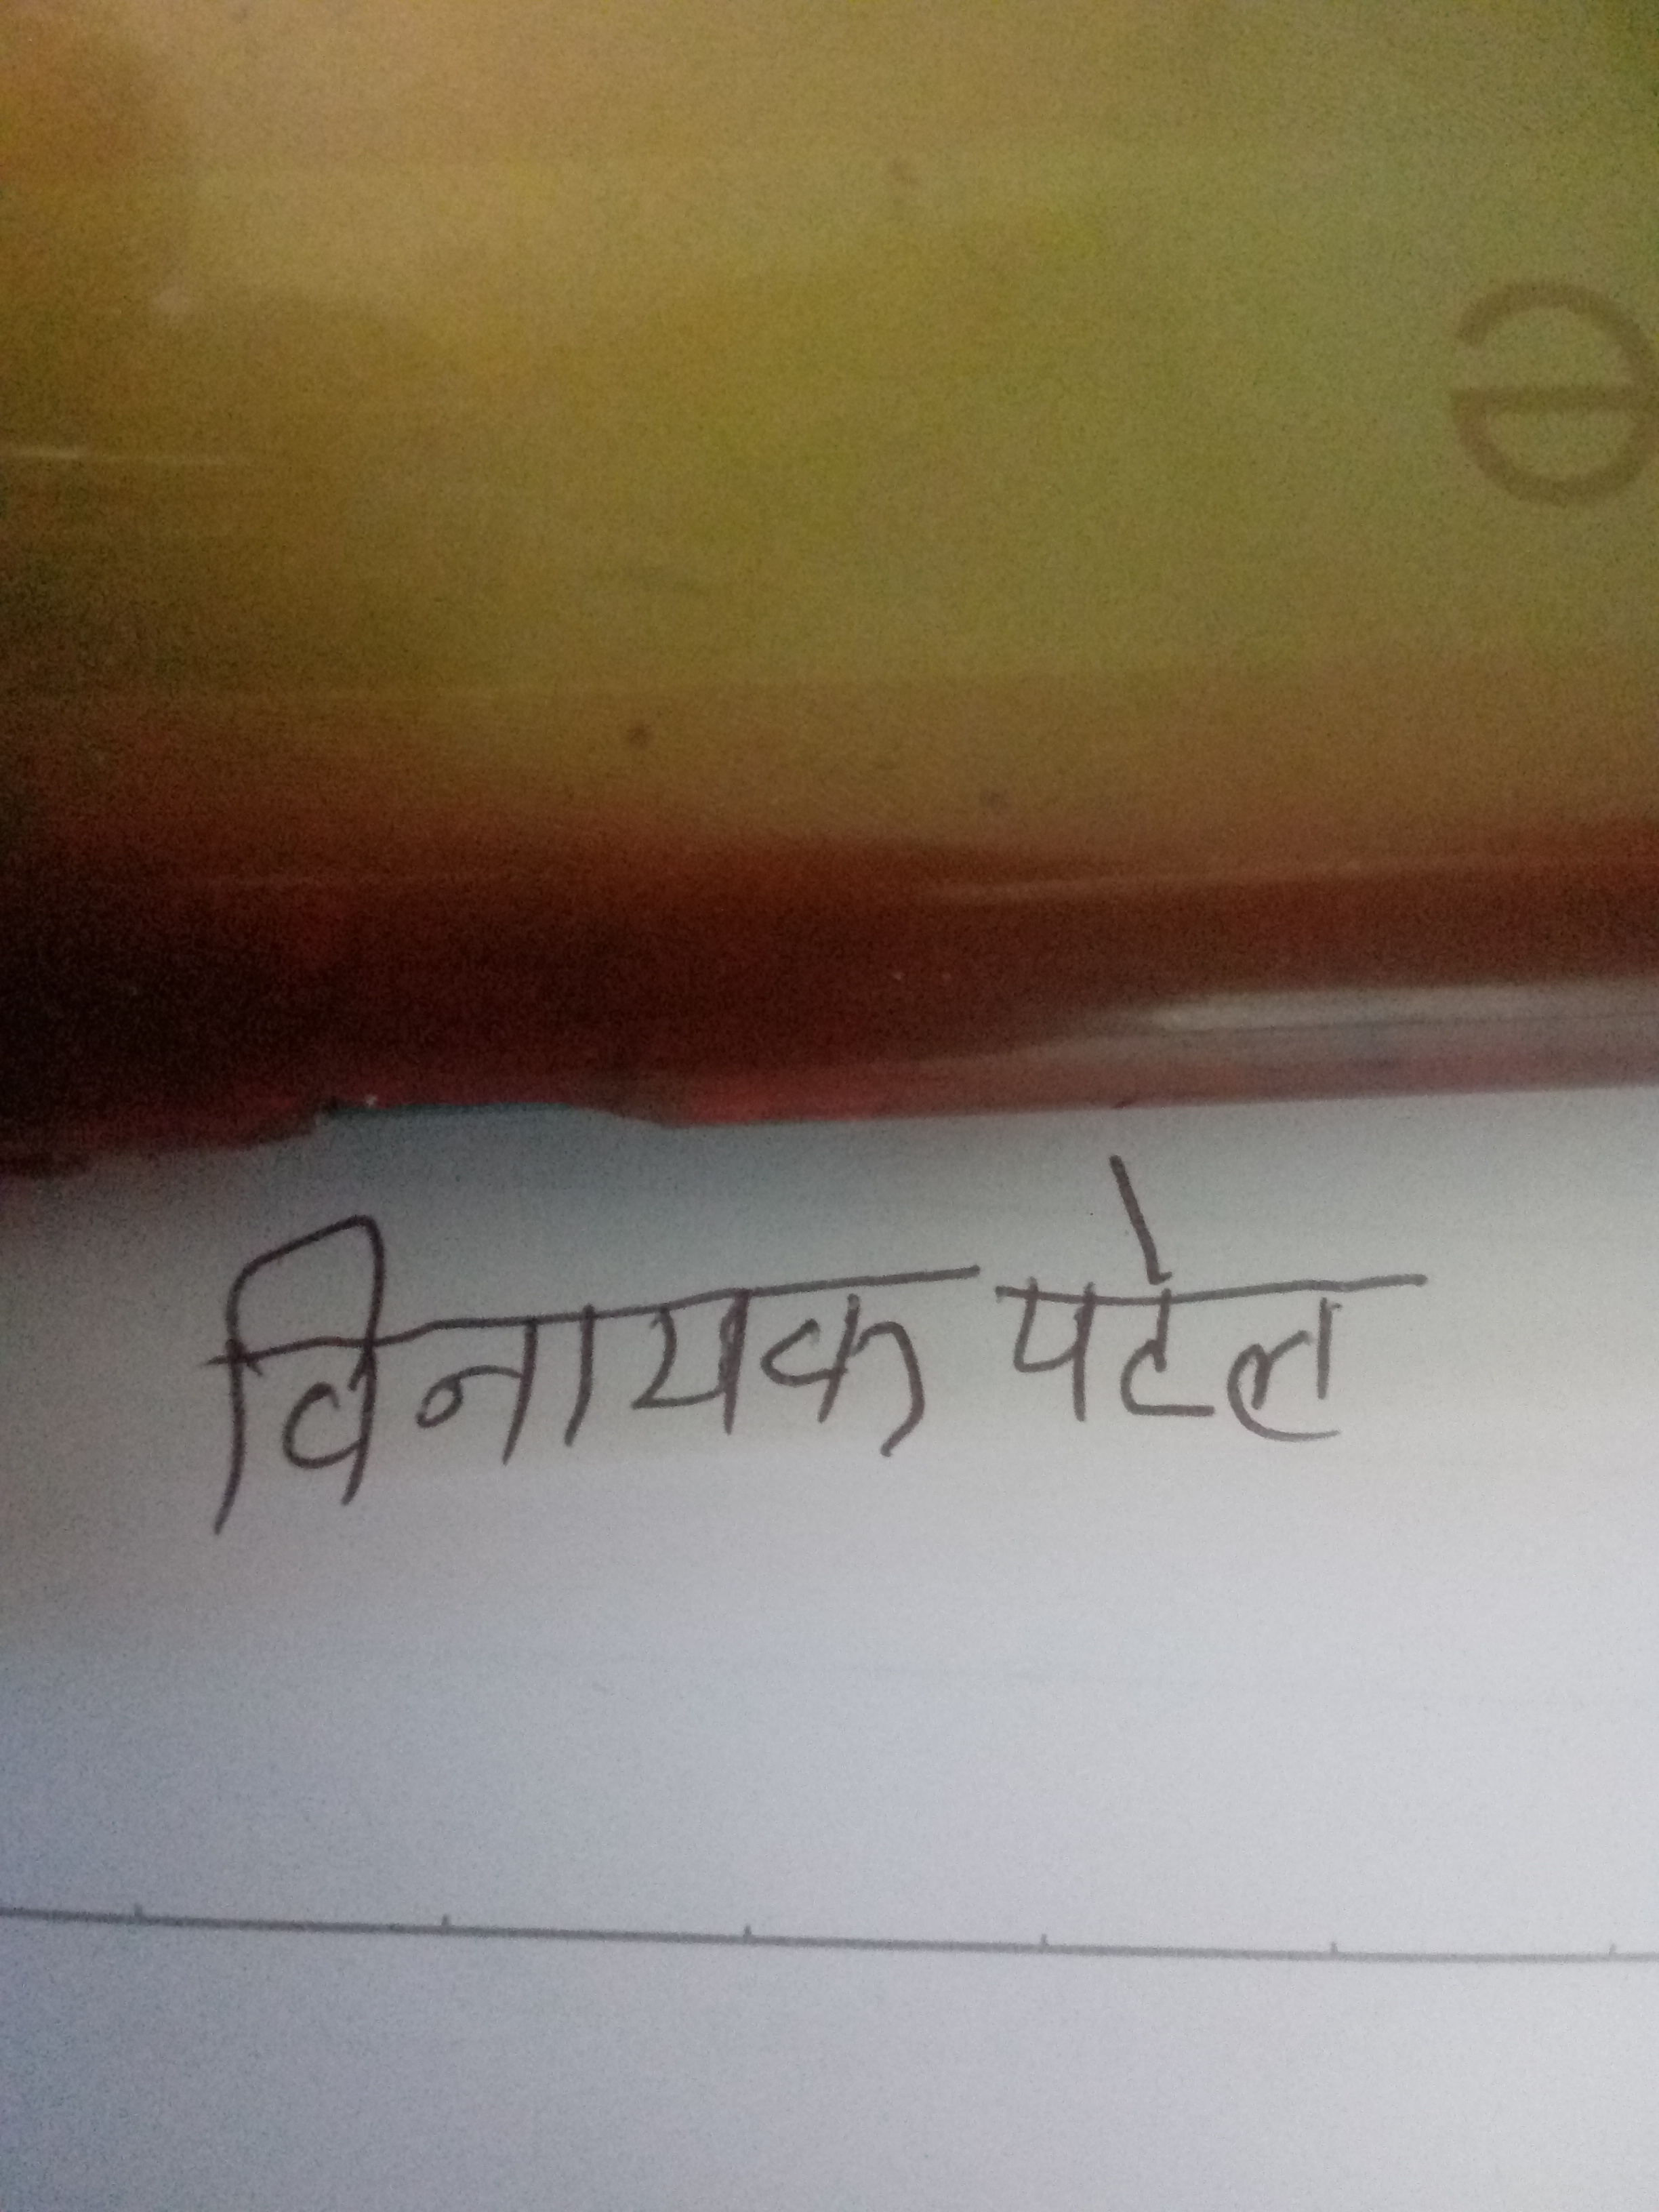 विनायक पटेल